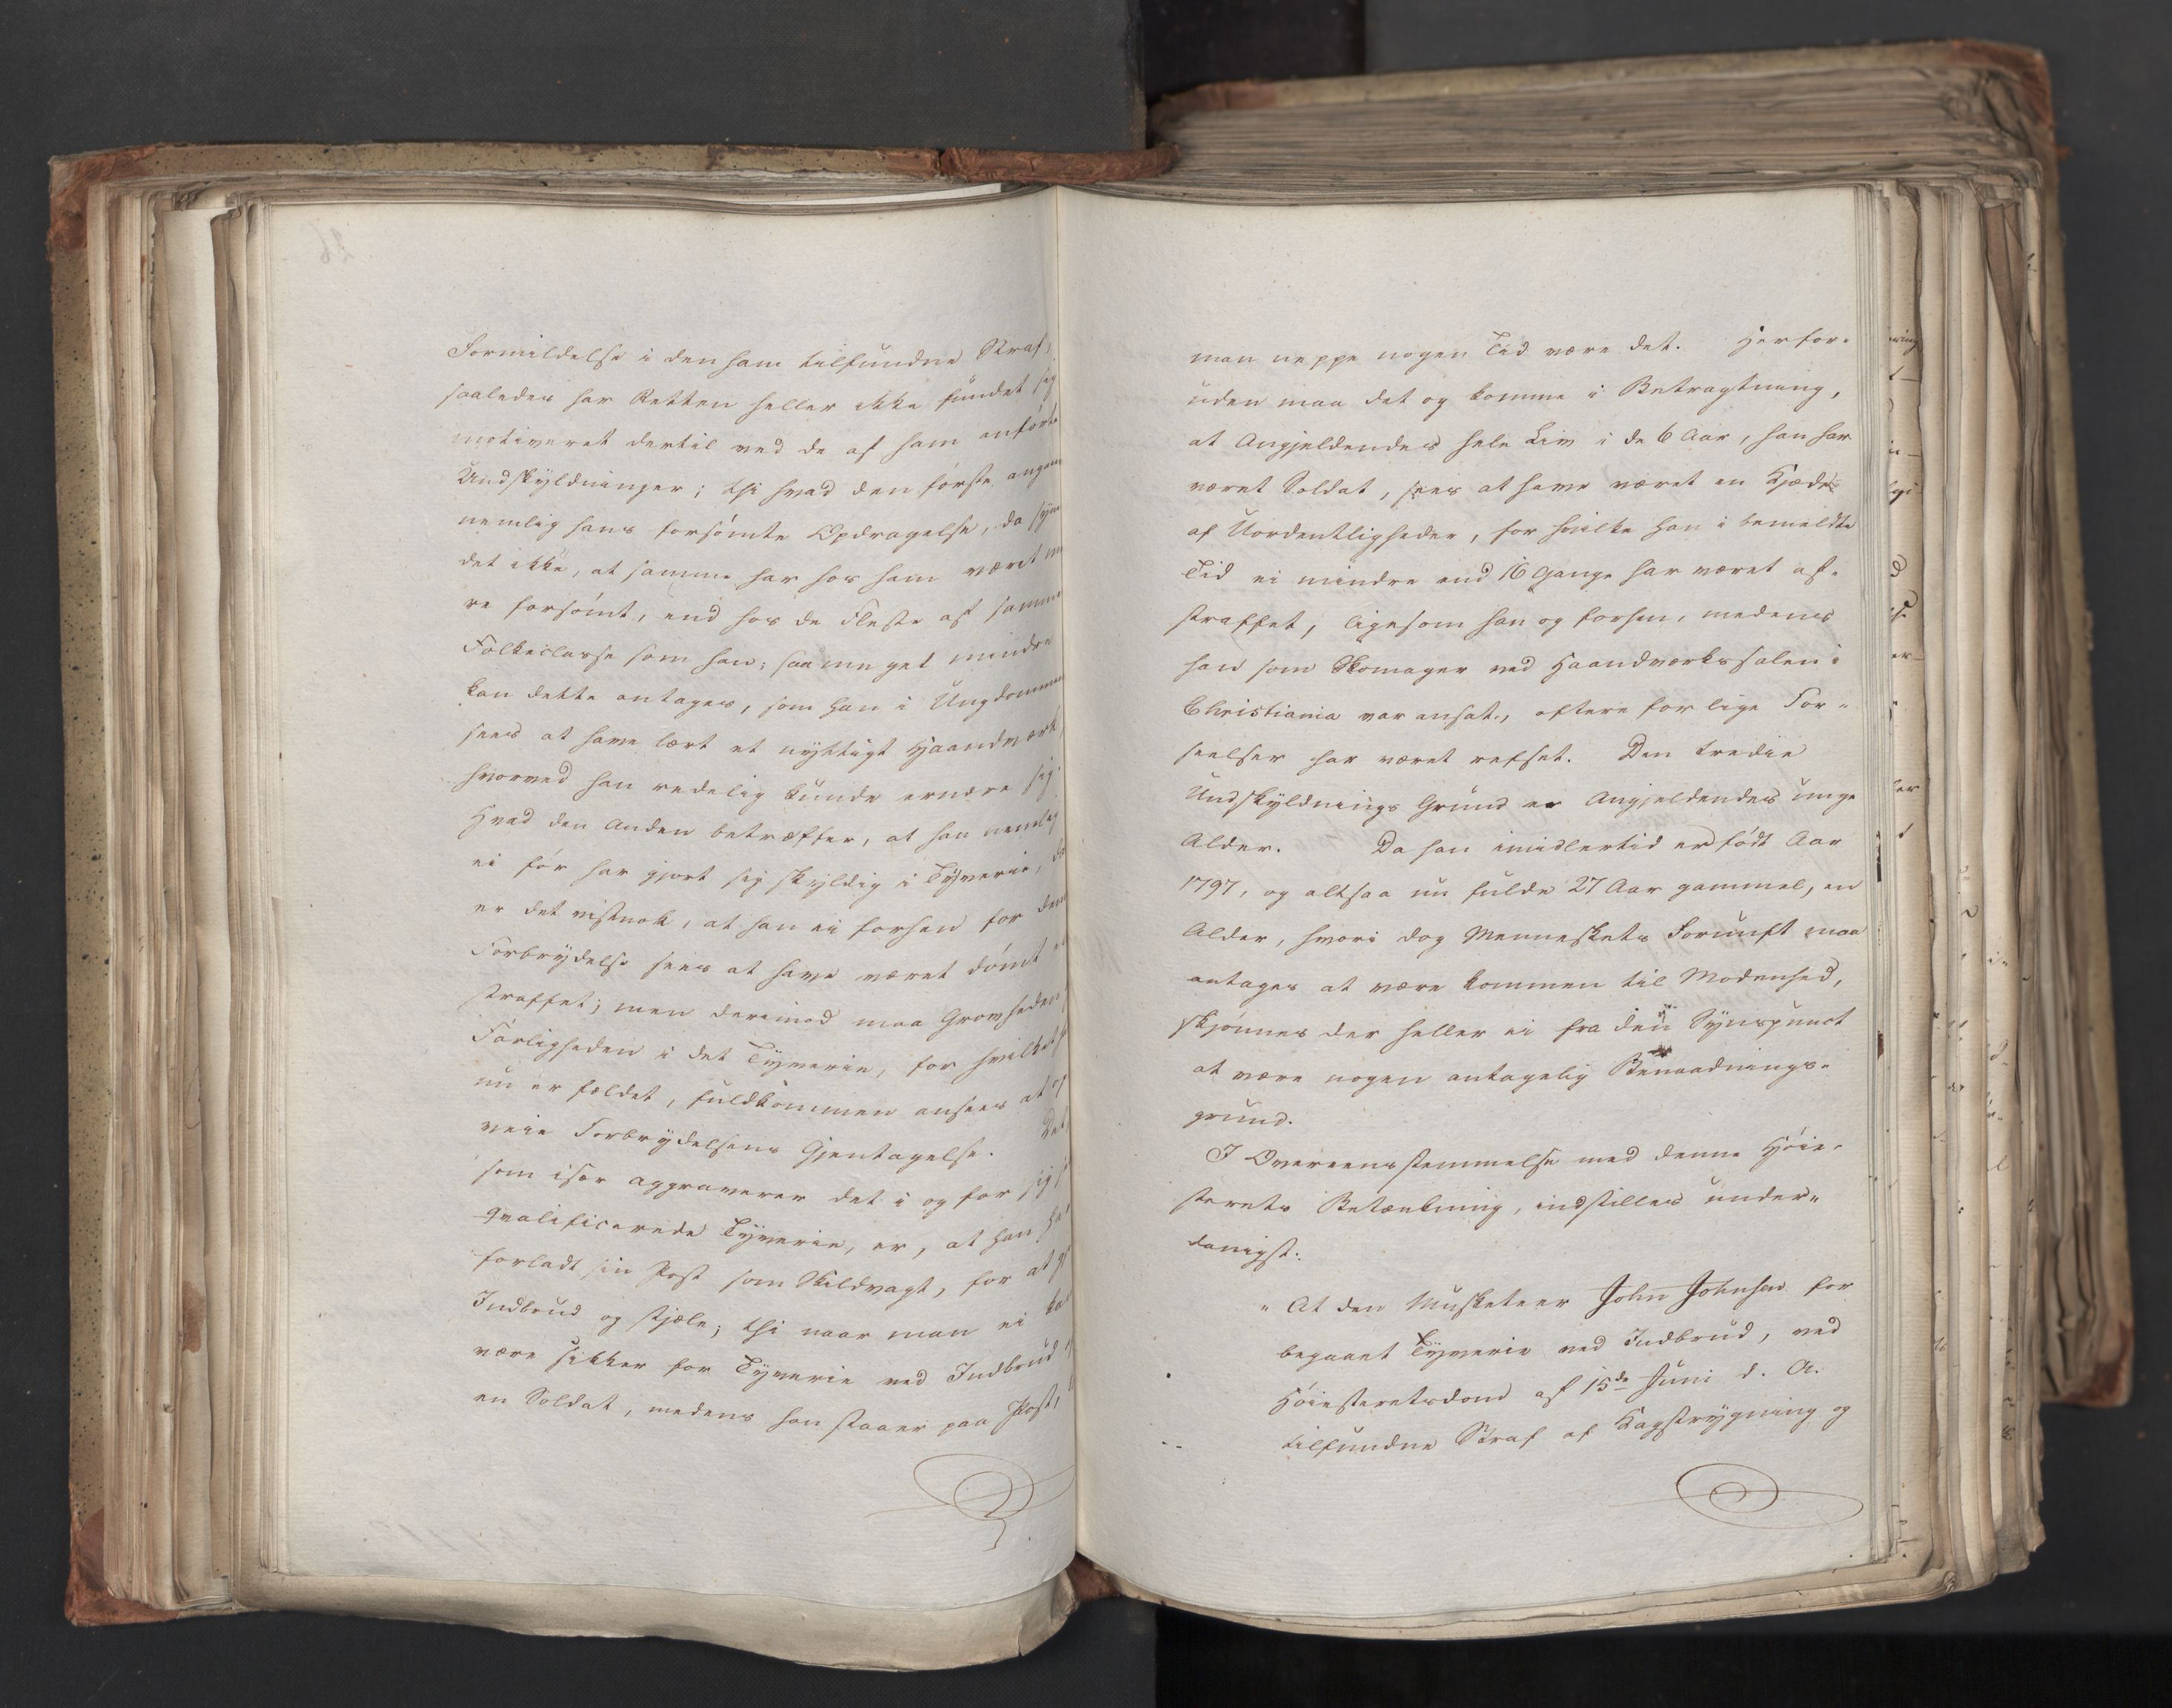 Formildelse i den ham tilfundne Straf,
saaledes har Retten heller ikke fundet sig
motiveret dertil ved de af ham anførte
Undskyldninger; thi hvad den første angaa
nemlig hans forsømte Opdragelse, da syne
det ikke, at samme har hos ham været me
re forsømt, end hos de Fleste af samme
Folkeclasse som han; saameget mindre
kan dette antages, som han i Ungdommen
sees at have lært et nyttigt Haandværk,
hvorved han redelig kunde ernære sig.
Hvad den Anden betræffer, at han nemlig
ei før har gjort sig skyldig i Tyverie, da
er det vistnok, at han ei forhen for denne
Forbrydelse sees at have været dømt e
straffet; men derimod maa Grovheden
Farligheden i det Tyverie, for hvilket
nu er fældet, fuldkommen ansees at op
veie Forbrydelsens Gjentagelse. Det,
som især aggraverer det i og for sig
qvalificerede Tyverie, er, at han ha
forladt sin Post som Skildvagt, for at gj
Indbrud og stjæle; thi naar man ei kan
være sikker for Tyverie ved Indbrud
en Soldat, medens han staaer paa Post,
man neppe nogen Tid være det. Herfor-
uden maa det og komme i Betragtning,
at Angjeldendes hele Liv i de 6 Aar, han har
været Soldat, sees at have været en Kjæde
af Uordentligheder, for hvilke han i bemeldte
Tid ei mindre end 16 Gange har været af-
straffet, ligesom han og forhen, medens
han som Skomager ved Haandværkssalen i
Christiania var ansat, oftere for lige For-
seelser har været refset. Den tredie
Undskyldnings Grund er Angjeldendes unge
Alder. Da han imidlertid er født Aar
1797, og altsaa nu fulde 27 Aar gammel, en
Alder, hvori dog Menneskets Fornuft maa
antages at være kommen til Modenhed,
skjønnes der heller ei fra den Synspunct
at være nogen antagelig Benaadnings-
grund.
I Overeensstemmelse med denne Høie-
sterets Betænkning, indstilles under-
danigst:
"At den Musketeer John Johnsen for
begaaet Tyverie ved Indbrud, ved
Høiesteretsdom af 15de Juni d. A.
tilfundne Straf af Kagstrygning og